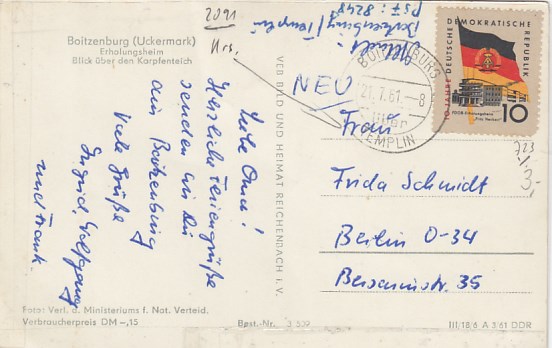 Boitzenburg (Uckermark)
Erholungsheim
Blick über den Karpfenteich
2091
Krs.
Boitzenburg/Templin
Psf: 8248
Liebe Oma!
Herzliche Feriengrüße
senden wir Dir
aus Boitzenburg
Viele Grüße
Ingrid, Wolfgang
und Frank.
Foto: Verl. d. Ministeriums f. Nat. Verteid.
Verbraucherpreis DM -,15
VEB BILD UND HEIMAT REICHENBACH i. V.
Best.-Nr.
III/18/6 A 3/61 DDR
BOITZENBURG
21.7.61.-8
TEMPLIN
10 JAHRE DEUTSCHE DEMOKRATISCHE REPUBLIK
10
NEU
Frau
Frida Schmidt
Berlin O-34
35
723
3,-